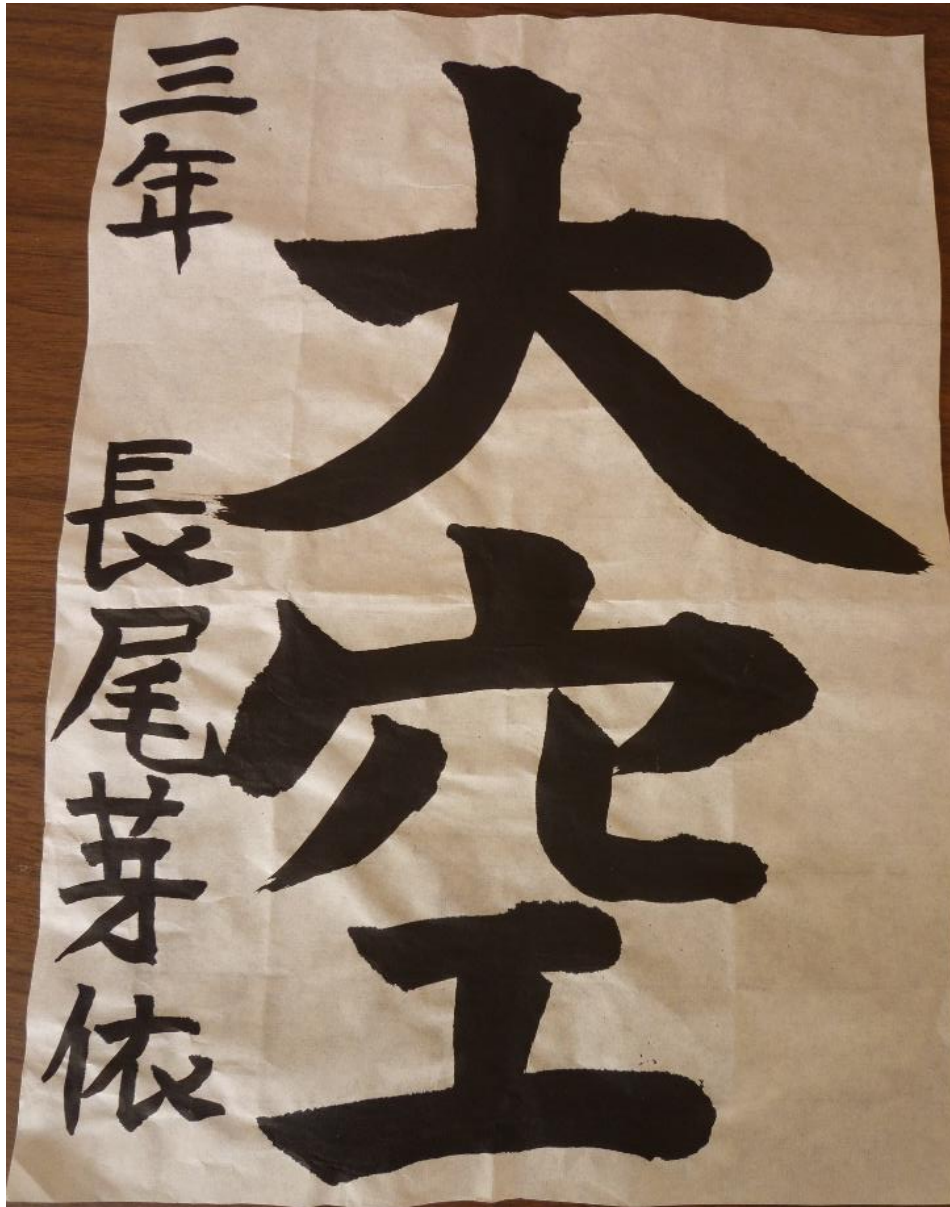 大空
三年 長尾芽依